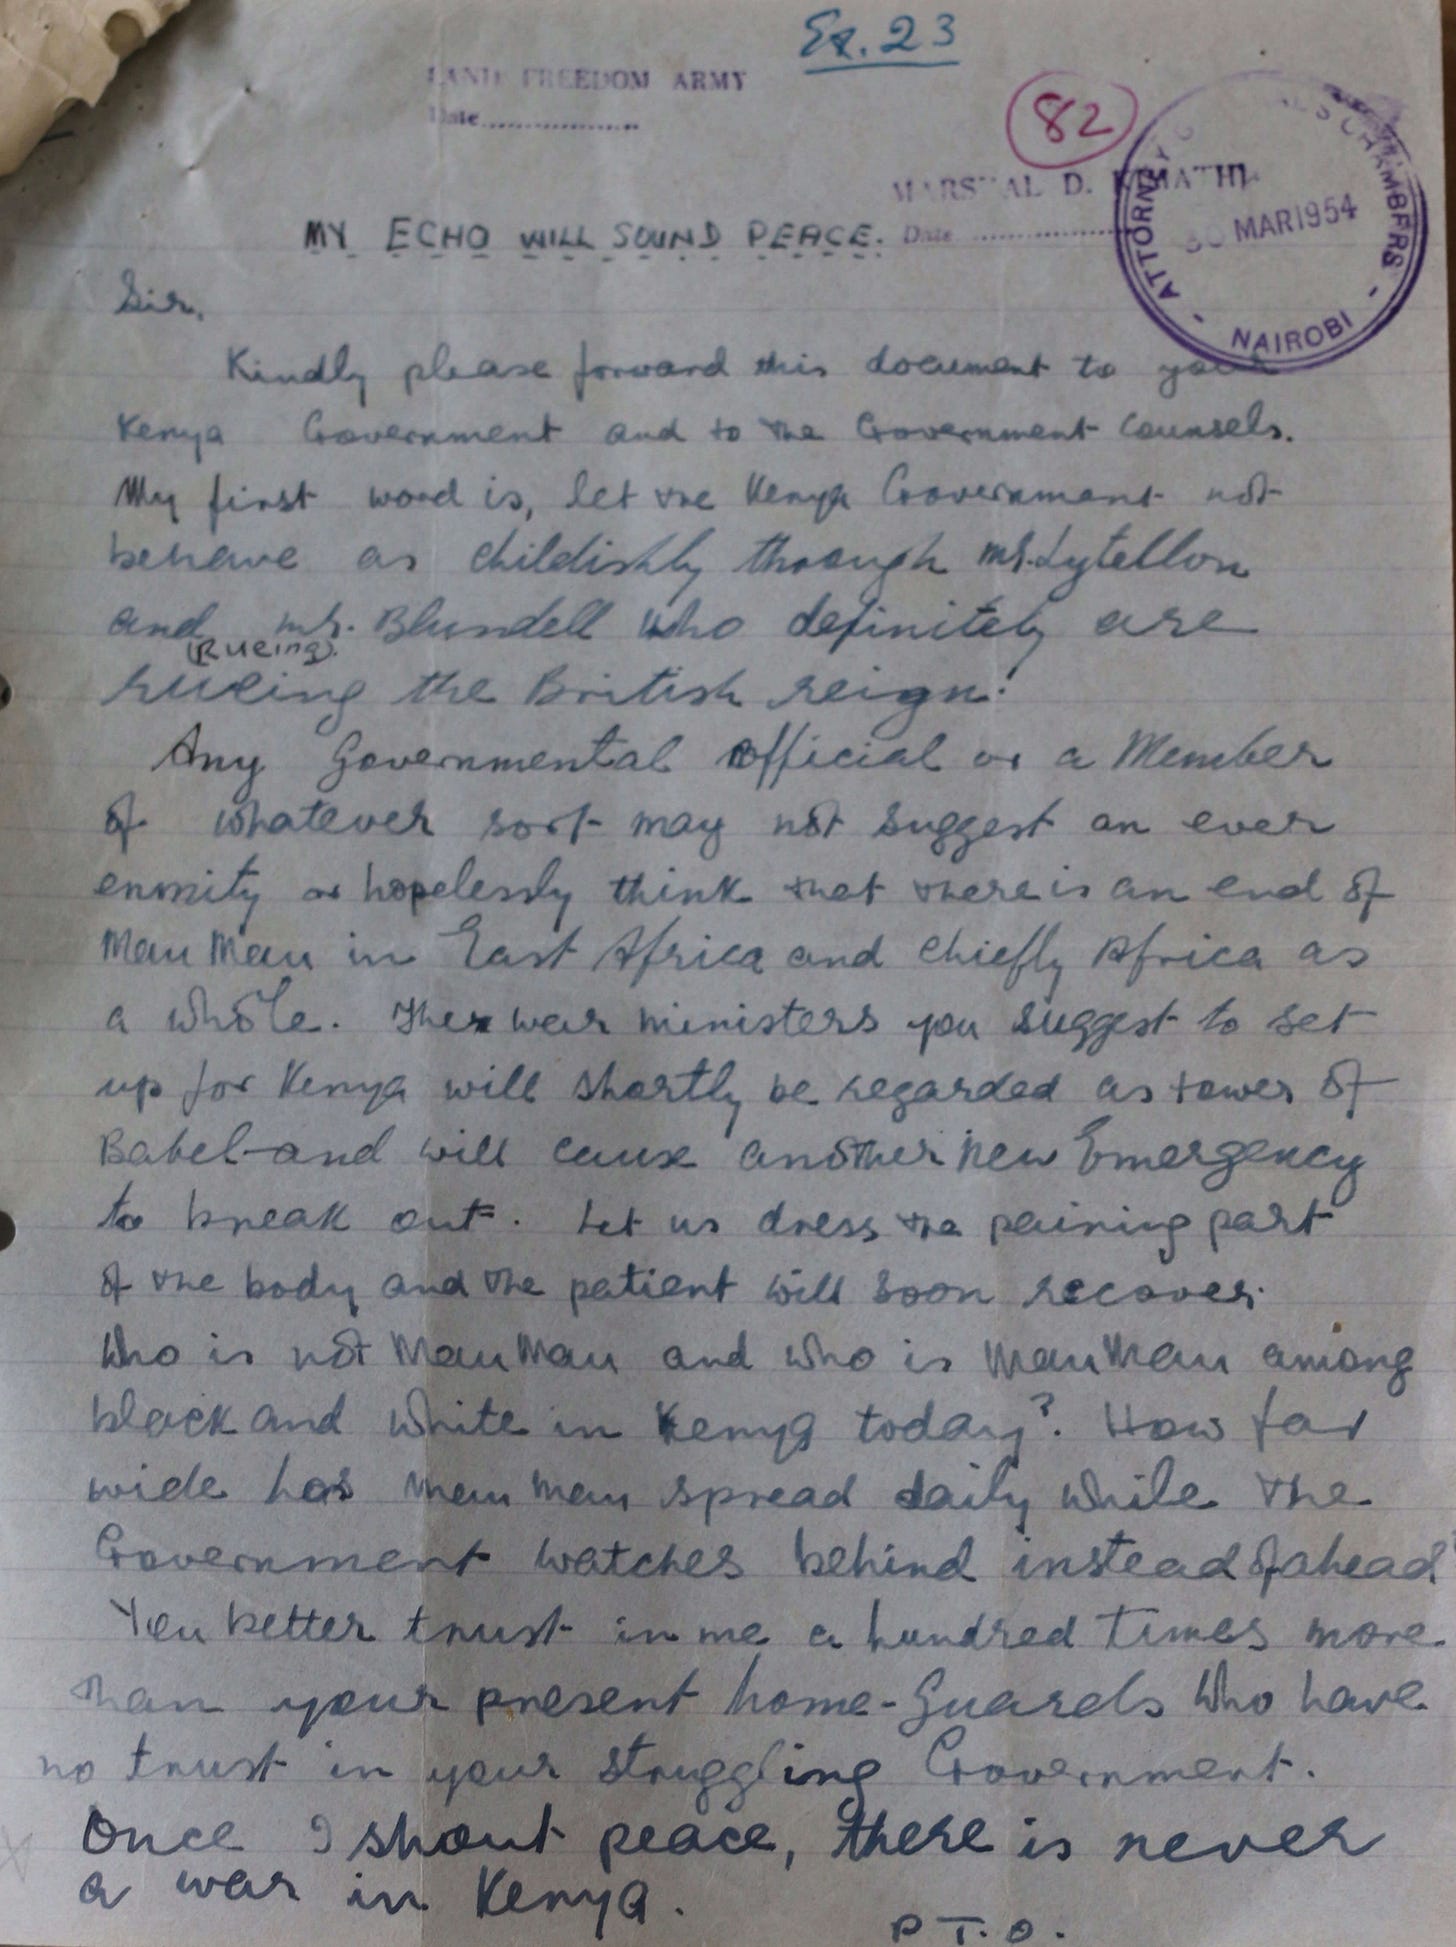 Ex. 23
LAND FREEDOM ARMY
Date
82
ATTORNEY CHAMBERS
30 MAR 1954
- NAIROBI -
MARSHAL D. KIMATHI
Date
MY ECHO WILL SOUND PEACE.
Sir,
Kindly please forward this document to your
Kenya Government and to the Government Counsels.
My first word is, let the Kenya Government not
behave as childishly through mr. Lytellon
and mr. Blundell who definitely are
(Rueing).
rueing the British reign.
Any Governmental official or a Member
of whatever sort may not suggest an ever
enmity or hopelessly think that there is an end of
Mau Mau in East Africa and chiefly Africa as
a whole. The war ministers you suggest to set
up for Kenya will shortly be regarded as tower of
Babel and will cause another new Emergency
to break out. Let us dress the paining part
of the body and the patient will soon recover.
Who is not Mau Mau and who is Mau Mau among
black and white in Kenya today? How far
wide has Mau Mau spread daily while the
Government watches behind instead of ahead
You better trust in me a hundred times more
than your present home-Guards who have
no trust in your struggling Government.
Once I shout peace, there is never
a war in Kenya.
P.T.O.